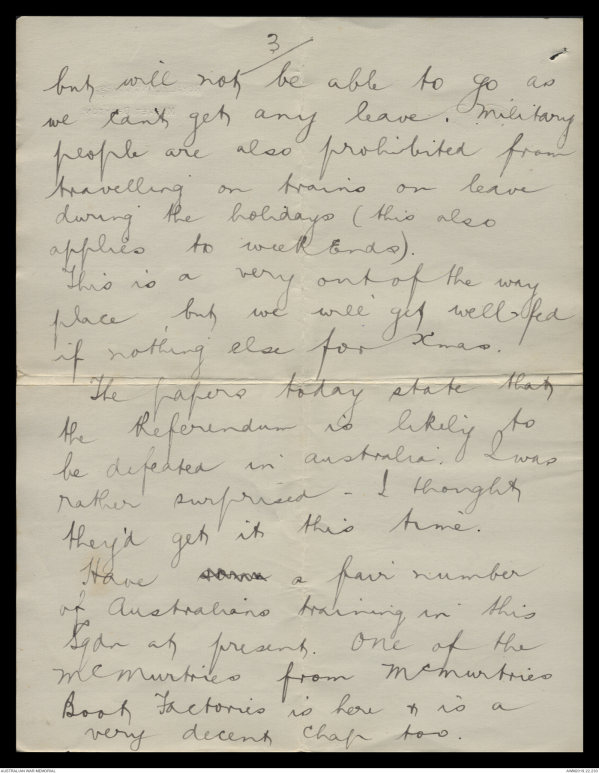 3/
but will not be able to go as
we can't get any leave. Military
people are also prohibited from
travelling on trains on leave
during the holidays (this also
applies to week Ends).
This is a very out of the way
place but we will get well-fed
if nothing else for Xmas.
The papers today state that
the Referendum is likely to
be defeated in Australia. I was
rather surprised - I thought
they'd get it this time.
Have a fair number
of Australians training in this
Sqdn at present. One of the
McMurtries from McMurtries
Boot Factories is here & is a
very decent chap too.
AUSTRALIAN WAR MEMORIAL